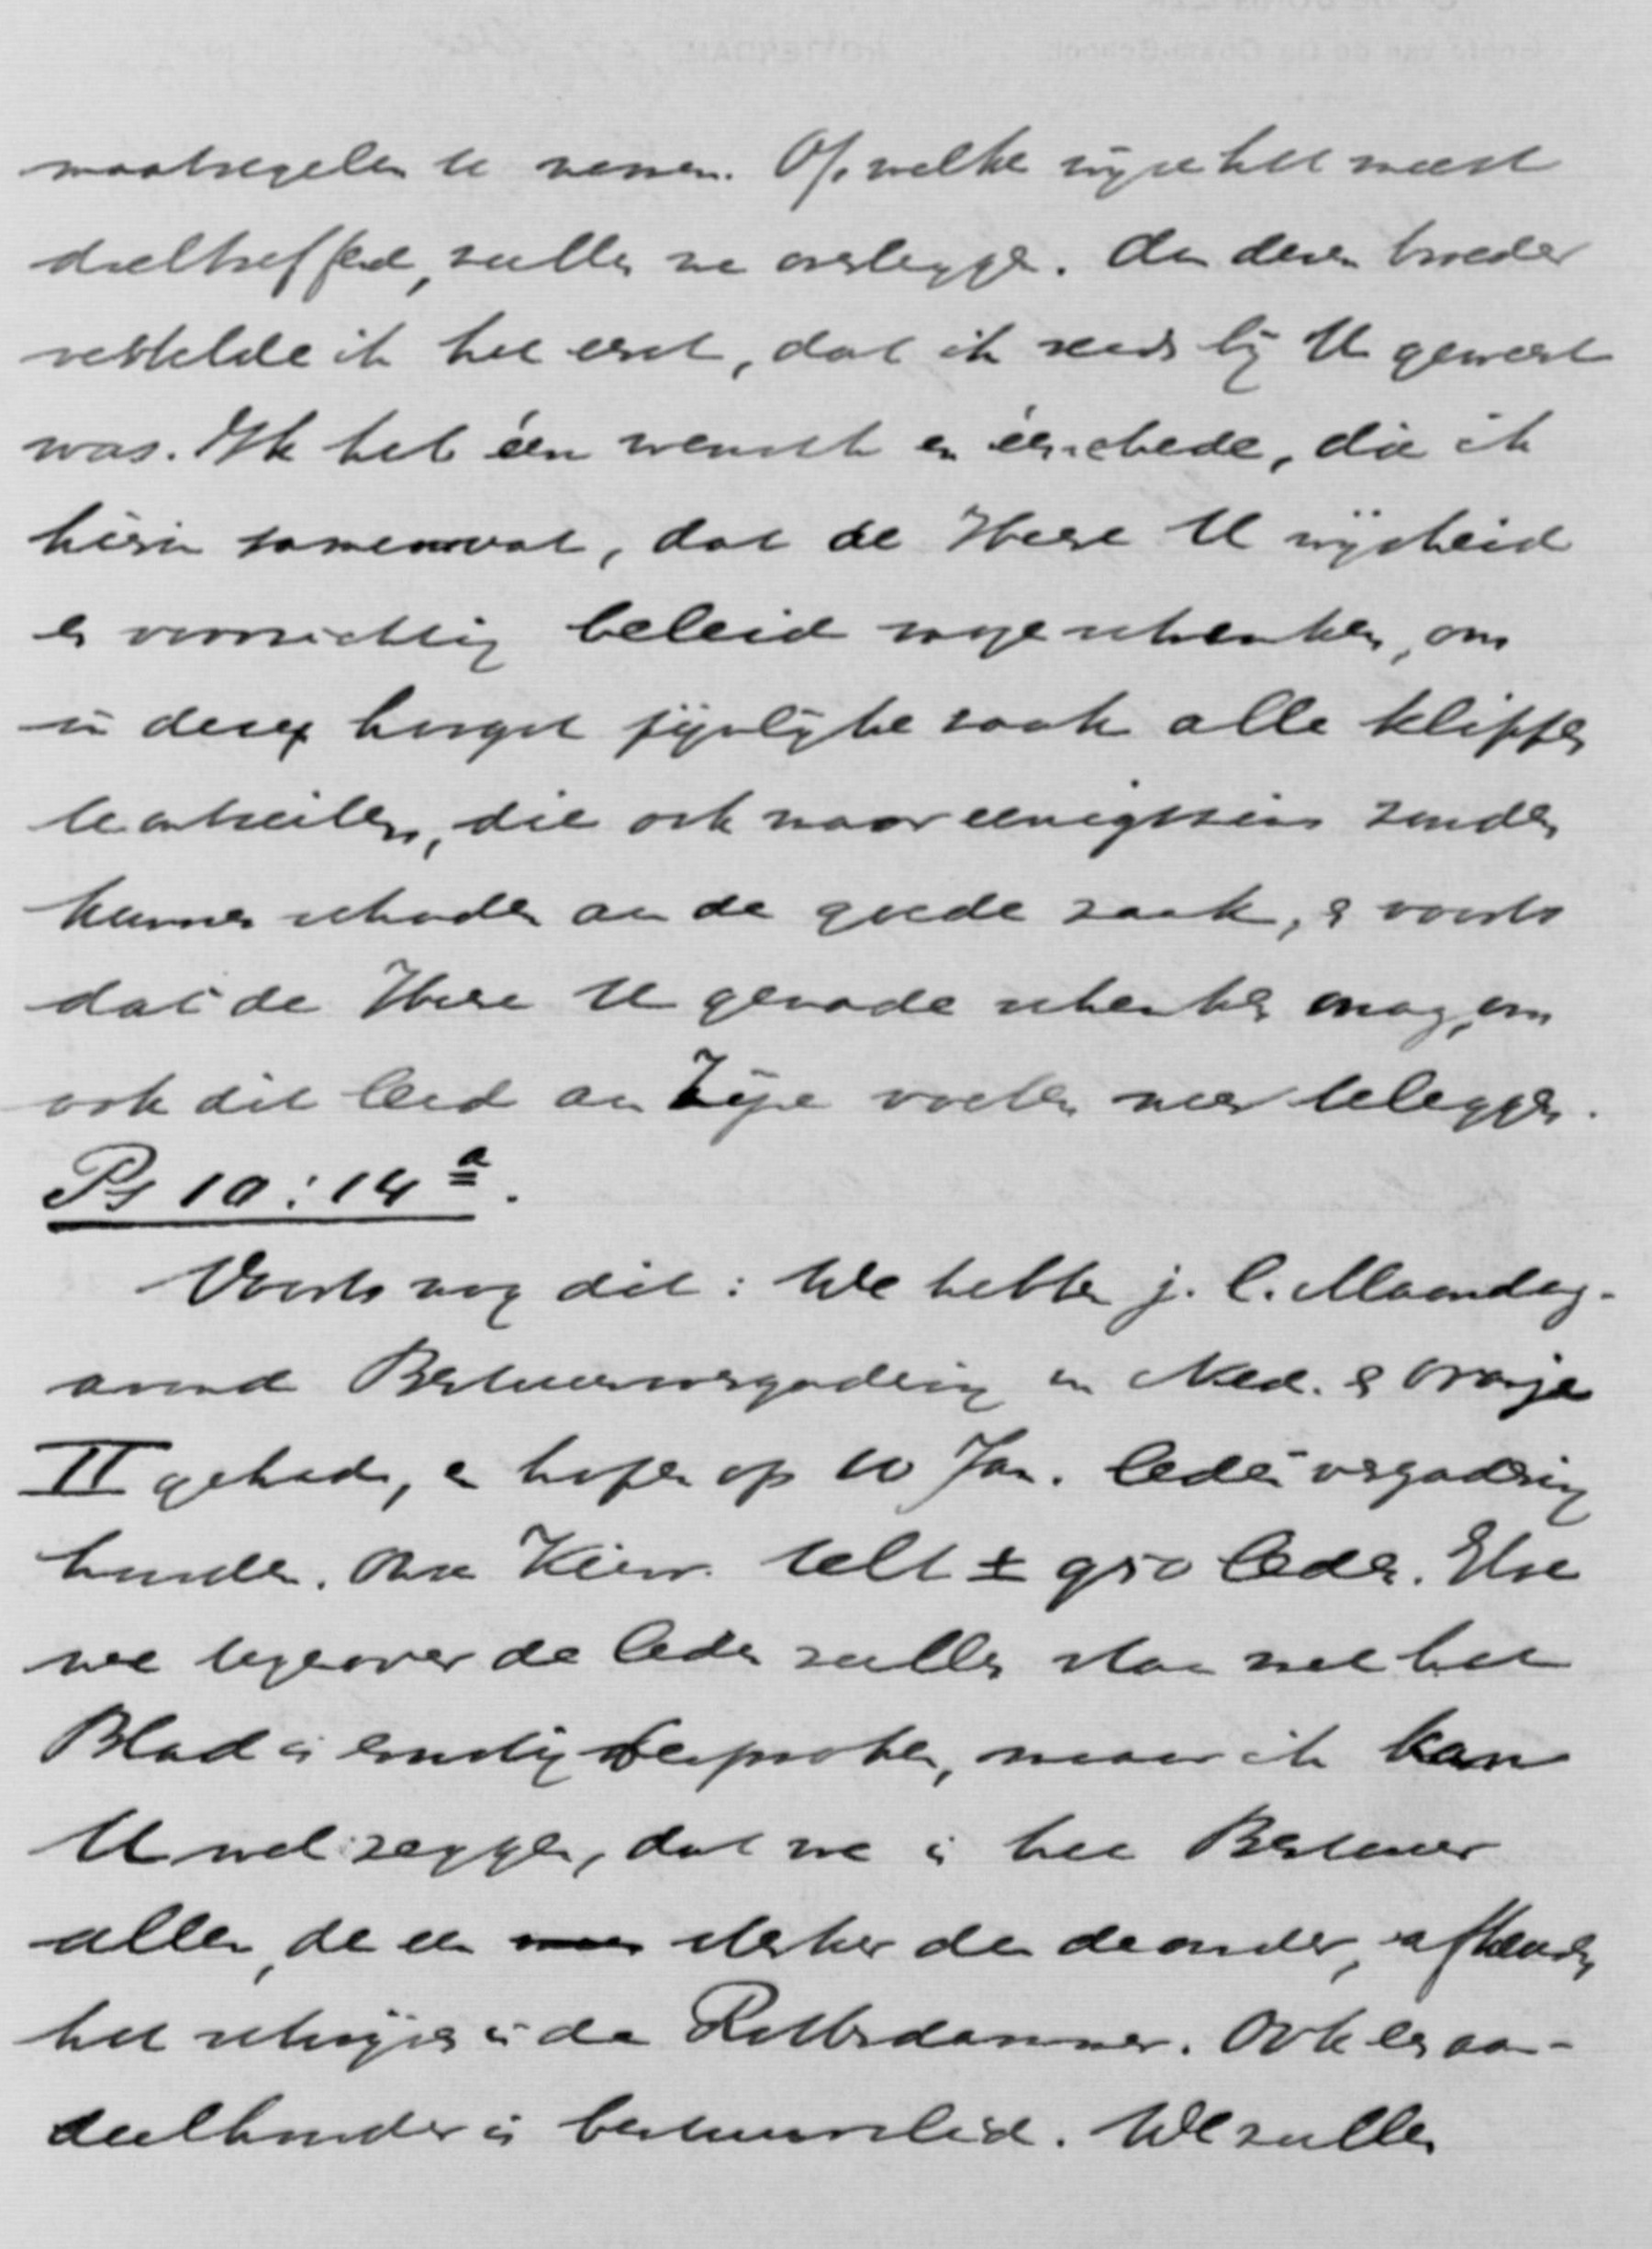 maatregelen te nemen. Op welke wijze het meest
doeltreffend, zullen we overleggen. Aan dezen broeder
vertelde ik het eerst, dat ik reeds bij U geweest
was. Ik heb één wensch en één bede, die ik
hierin samenvat, dat de Heere U wijsheid
en voorzichtig beleid moge schenken, om
in deze hoogst pijnlijke zaak alle klippen
te omzeilen, die ook maar eenigszins zouden
kunnen schaden aan de goede zaak, en voorts
dat de Heere U genade schenken mag, om
ook dit leed aan Zijne voeten neer te leggen.
Ps 10:14a.
Voorts nog dit: We hebben j.l. Maandag-
avond Bestuursvergadering van Ned. en Oranje
II gehad, en hopen op 10 Jan. ledenvergadering
houden. Onze Kiesv. telt ± 950 leden. Hoe
we tegenover de leden zullen staan met het
Blad is ernstig besproken, maar ik kan
U wel zeggen, dat we in het Bestuur
allen, de een sterker dan de ander, afkeuren
het schrijven in de Rotterdammer. Ook een aan-
deelhouder is bestuurslid. We zullen